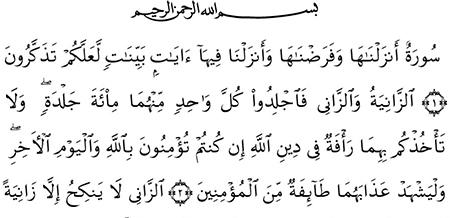 بِسْمِ اللَّهِ الرَّحْمَٰنِ الرَّحِيمِ
سُورَةٌ أَنزَلْنَـٰهَا وَفَرَضْنَـٰهَا وَأَنزَلْنَا فِيهَآ ءَايَـٰتٍۭ بَيِّنَـٰتٍ لَّعَلَّكُمْ تَذَكَّرُونَ
﴿١﴾ ٱلزَّانِيَةُ وَٱلزَّانِى فَٱجْلِدُوا۟ كُلَّ وَٰحِدٍ مِّنْهُمَا مِا۟ئَةَ جَلْدَةٍ ۖ وَلَا
تَأْخُذْكُم بِهِمَا رَأْفَةٌ فِى دِينِ ٱللَّهِ إِن كُنتُمْ تُؤْمِنُونَ بِٱللَّهِ وَٱلْيَوْمِ ٱلْـَٔاخِرِ ۖ
وَلْيَشْهَدْ عَذَابَهُمَا طَآئِفَةٌ مِّنَ ٱلْمُؤْمِنِينَ ﴿٢﴾ ٱلزَّانِى لَا يَنكِحُ إِلَّا زَانِيَةً